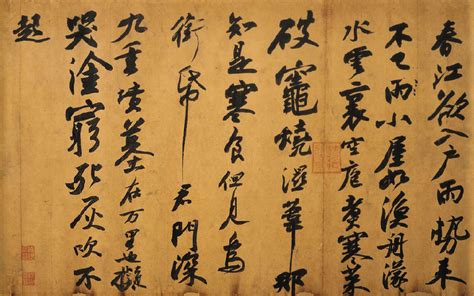 春江欲入戶雨勢來
不已雨小屋如漁舟濛〻
水雲裏空庖煮寒菜
破竈燒濕葦那
知是寒食但見烏
銜帋君門深
九重墳墓在万里也擬
哭塗窮死灰吹不
起